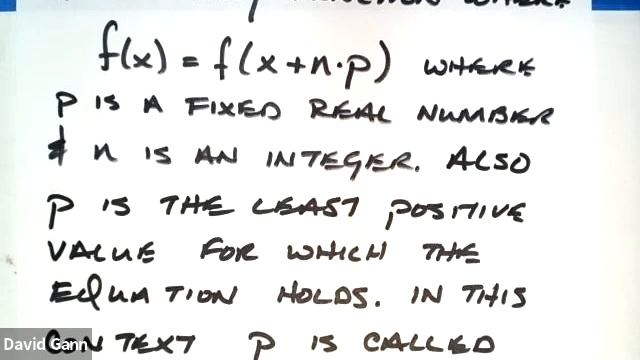 f(x) = f(x+n·p) WHERE
P IS A FIXED REAL NUMBER
& n IS AN INTEGER. ALSO
P IS THE LEAST POSITIVE
VALUE FOR WHICH THE
EQUATION HOLDS. IN THIS
CONTEXT P IS CALLED
David Gann